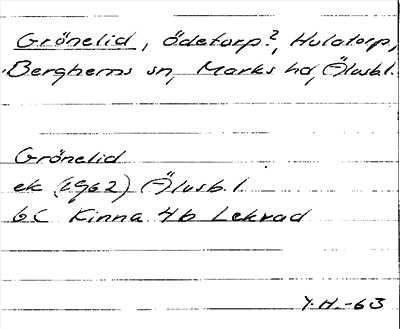 Grönelid, ödetorp?, Hulatorp,
Berghems sn, Marks hd, Älvsb.l.
Grönelid
ek (1962) Älvsb.l
6C Kinna 4b Lekvad
Y.H.-63